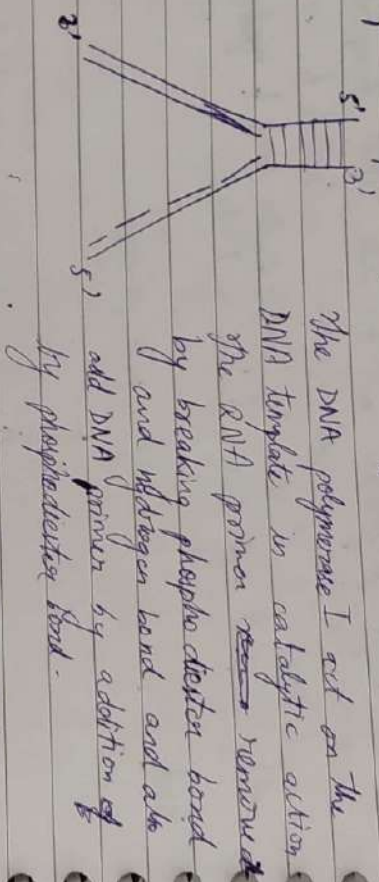 5' 3'
3'
5'
The DNA polymerase I act on the
DNA template in catalytic action
The RNA primer removed
by breaking phosphodiester bond
and hydrogen bond and also
add DNA primer by addition of
by phosphodiester bond.